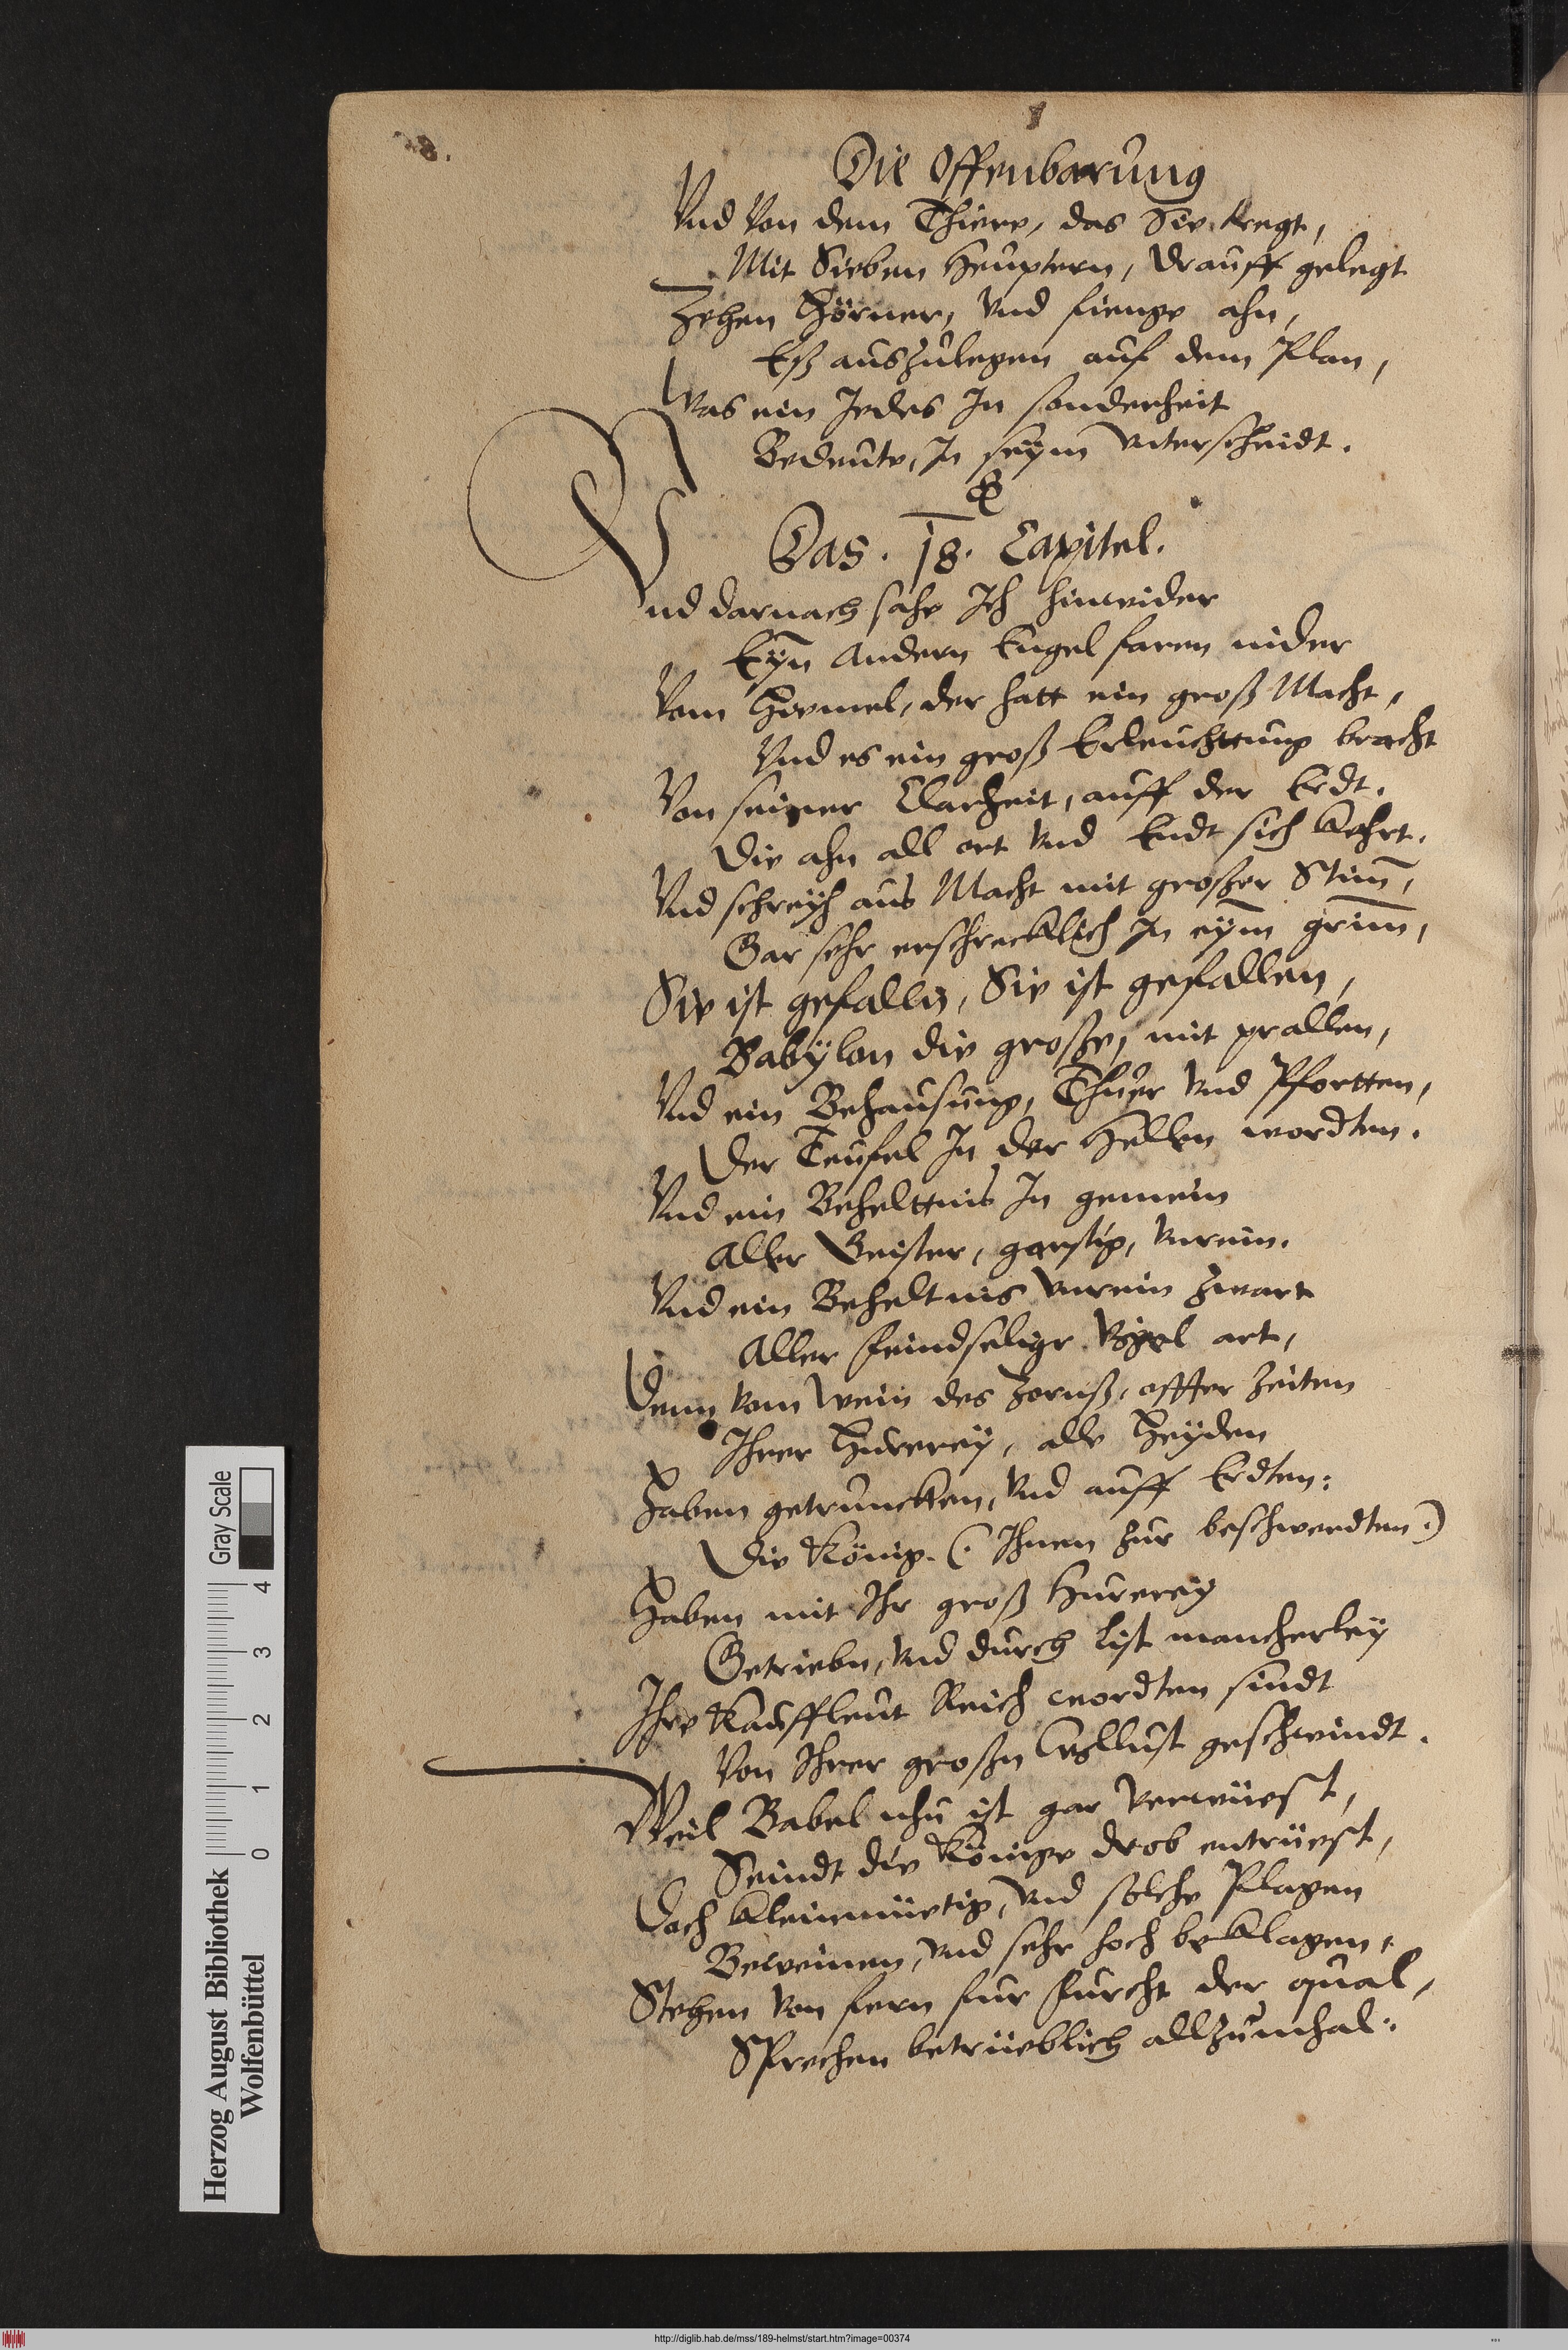 Die Offenbarung
Vnd Von dem Thiere, das Sie tregt,
Mit Sieben Heuptern, Drauff gelegt
Zehen Hörner, Vnd fienge ahn,
Eß auszulegen auf dem Plan,
Was ein Jedes In sonderheit
Bedeute, In seÿm vnterscheidt.
Das. 18. Capitel.
Vnd darnach sahe Ich hinwider
Eÿn Andern Engel faren nider
Vom Himel, der hatt ein groß Macht,
Vnd es ein groß Erleuchttung bracht
Von seiner Clarheit, auff der Erdt.
Die ahn all ort Vnd Endt sich kehrt.
Vnd schreÿh aus Macht mit großer Stim̄,
Gar sehr erschrecklich In eÿm grim̄,
Sie ist gefalln, Sie ist gefallen,
Babÿlon die große, mit prallen,
Vnd ein Behausung, Thuer Vnd Pfortten,
Der Teufel In der Hellen wordten.
Vnd ein Behelttnis In gemein
Aller Geister, garstig, Vnrein.
Vnd ein Beheltnis Vnrein zwart
Aller feindselige Vogel art,
Denn Vom Wein des Zornß, offter Zeiten
Ihrer Hurereÿ, alle Heÿden
Haben getruncken, Vnd auff Erdten:
Die König. (: Ihnen zur beschwerdten:)
Haben mit Ihr groß Hurereÿ
Getriebn, Vnd durch list mancherleÿ
Ihre Kauffleut Reich wordten sindt
Von Ihrer großn Wollust geschwindt.
Weil Babel nhu ist gar Verwüest,
Seindt die Könige drob entrüest,
Doch kleinmüetig, Vnd solche Plagen
Beweinen, Vnd sehr hoch beklagen,
Stehen Von fern fur furcht der qual,
Sprechen betrüeblich allzumhal.
Herzog August Bibliothek
Wolfenbüttel
0 1 2 3 4
Gray Scale
http://diglib.hab.de/mss/189-helmst/start.htm?image=00374